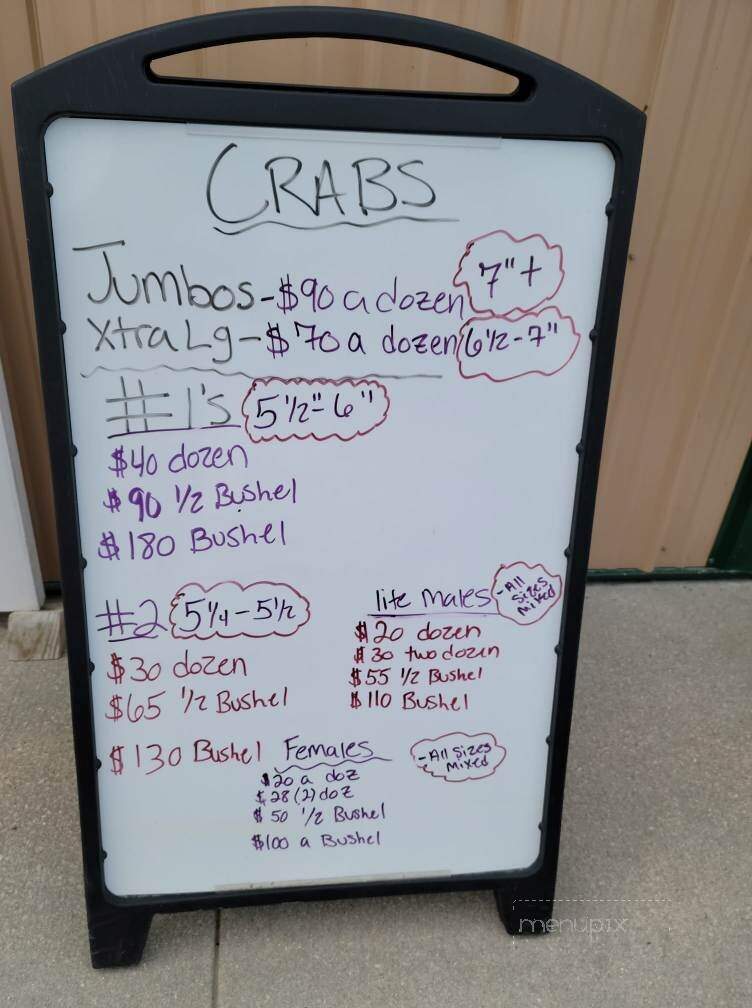 CRABS
Jumbos - $90 a dozen 7" +
Xtra Lg - $70 a dozen 6 1/2 - 7"
#1's 5 1/2" - 6"
$40 dozen
$90 1/2 Bushel
$180 Bushel
#2 5 1/4 - 5 1/2
$30 dozen
$65 1/2 Bushel
$130 Bushel
lite males - All Sizes Mixed
$20 dozen
$30 two dozen
$55 1/2 Bushel
$110 Bushel
Females - All Sizes Mixed
$20 a doz
$28 (2) doz
$50 1/2 Bushel
$100 a Bushel
menupix